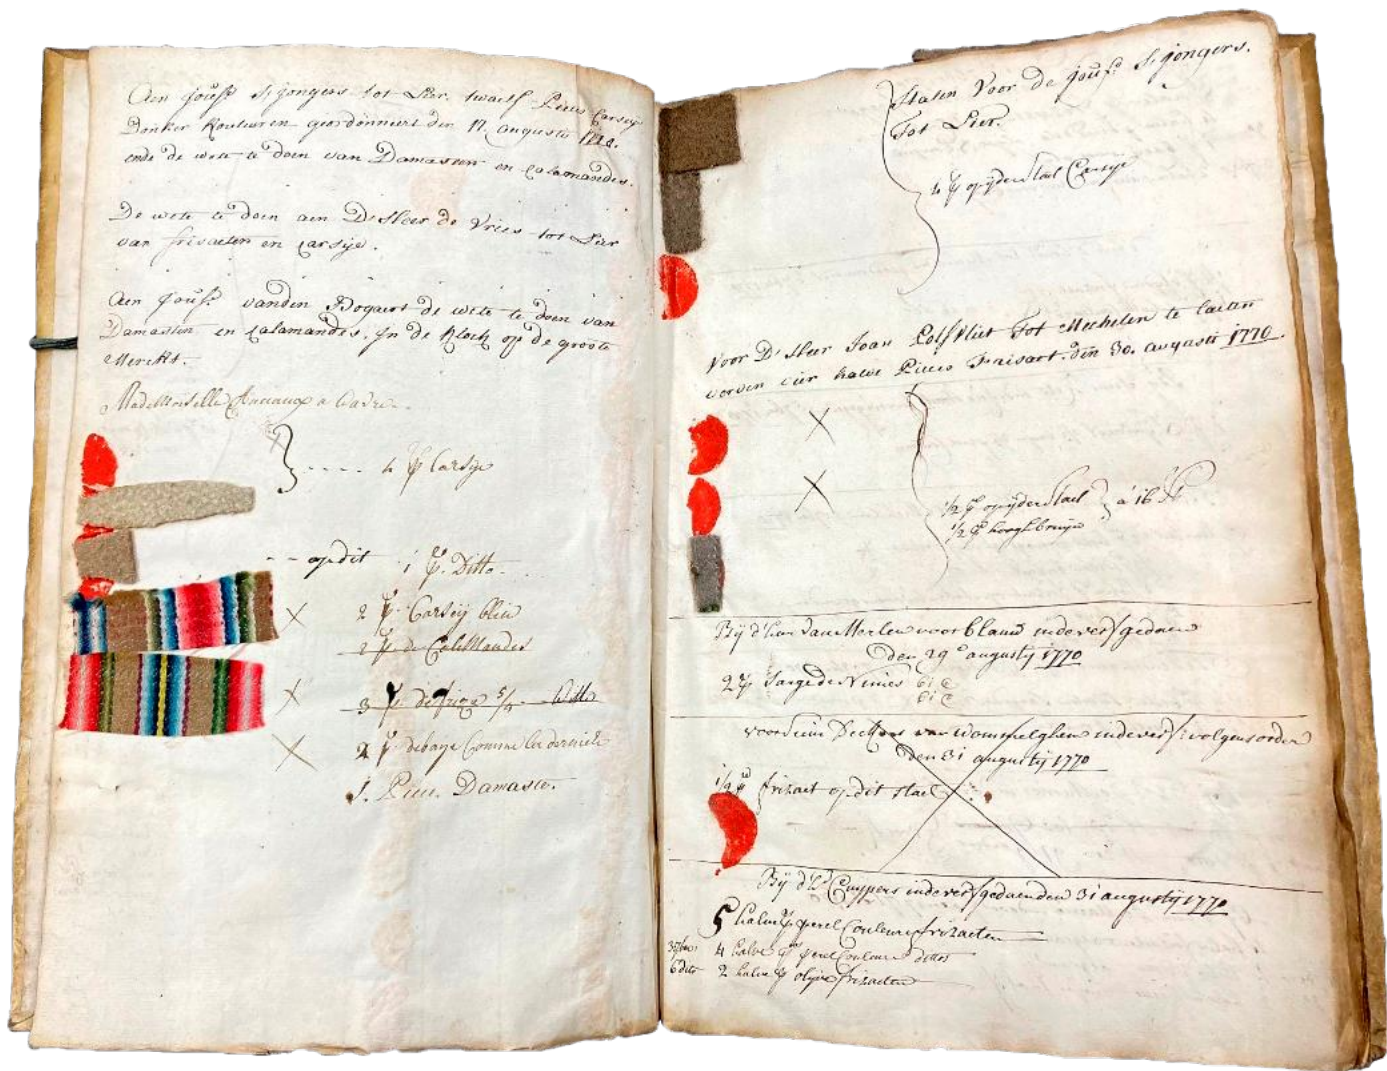 Aen Joufr S, jongers tot Lier. twaelf Pieces Carseij
Donker Kouleuren geordonneert den 17. augusti
ende de wete te doen van Damasten en Calamandes.
De wete te doen aen Dr Heer de Vries tot Lier
van frisaeten en Carsije.
Aen Joufr. vanden Bogaert de wete te doen van
Damasten en Calamandes. In de Klock op de groote
Merckt.
MadeMoiselle a
4 p Carsije
op dit 1 p. Ditto.
2 p. Carseij bleu
2 p de CaleMandes
3 p de frize 5/4 Witte
2 p de baye Comme la derniere
1. Piece. Damaste.
Staten Voor de joufr. S, jongers.
Tot Lier.
4 p op ijder Stael Carsije
Voor Dr Heer Joan Tot Mechelen te laeten
verven vier halve Pieces Frisaet. den 30. augusti 1770.
1/2 p op ijder Stael à 16
1/2 p hooghbruijn
Bij d'heer Van Merlen voor blauw inde verf gedaen
den 29e augustij 1770
2 p Sarge de Nimes
voor van Wommelghem inde verf: volgens orders
den 31 augustij 1770
1/2 p frisaet op dit stael
Bij d'hr Cuypers inde verf gedaen den 31 augustij 1770
5 halve p perel Couleur frisaeten
4 halve p perel Couleur dittos
6 dito 2 halve p olijve frisaeten